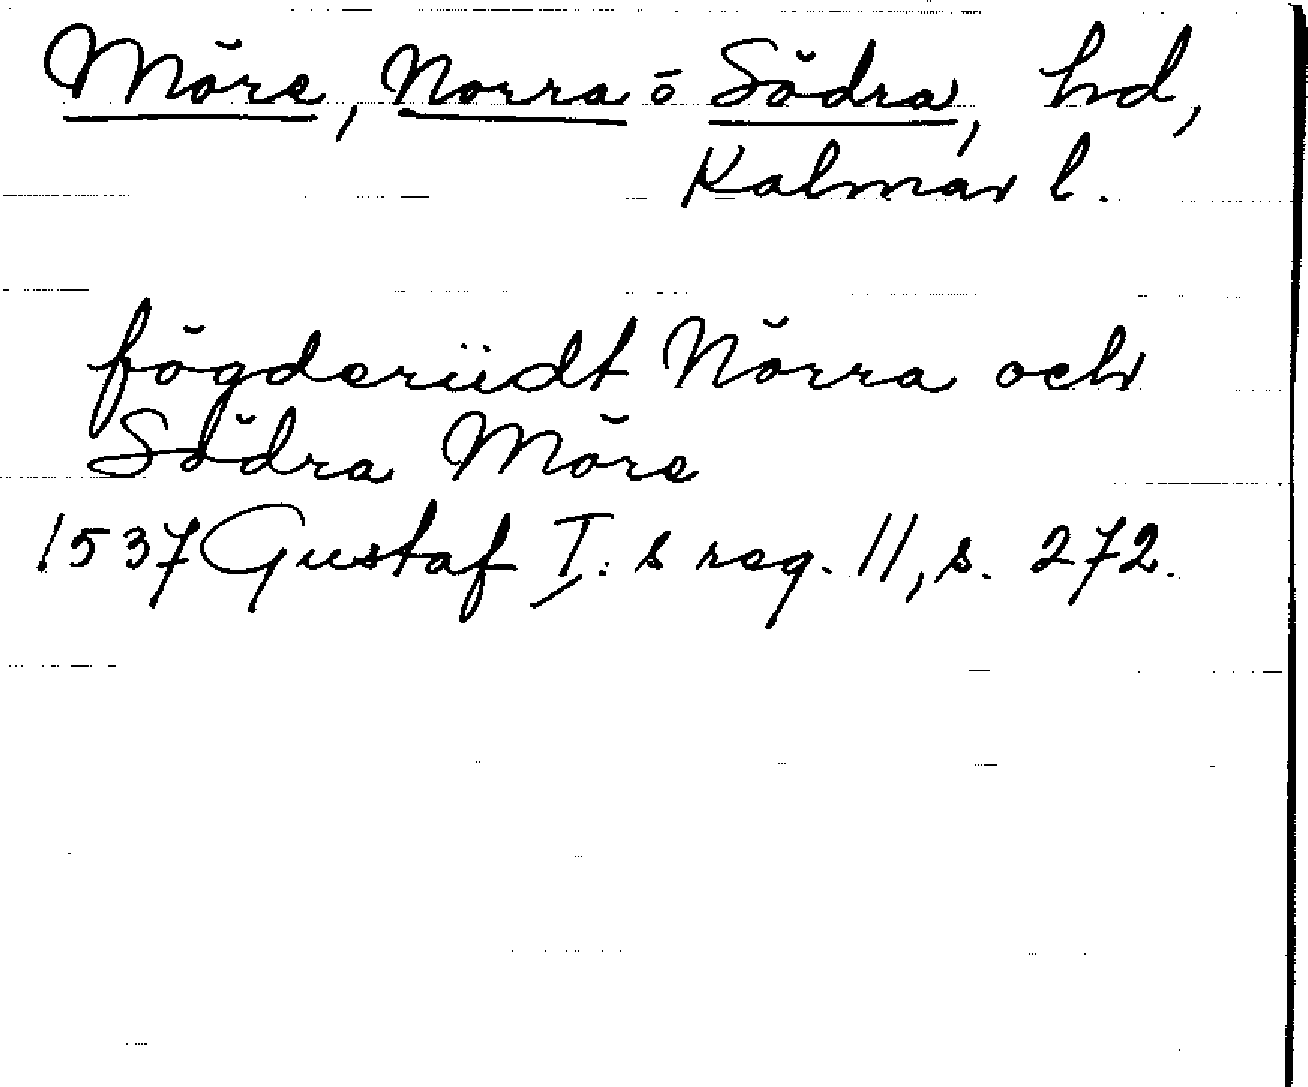 Möre, Norra o Södra, hd,
Kalmar l.
fögderiidt Nörra och
Södra Möre
1537 Gustaf I:s reg. 11, s. 272.